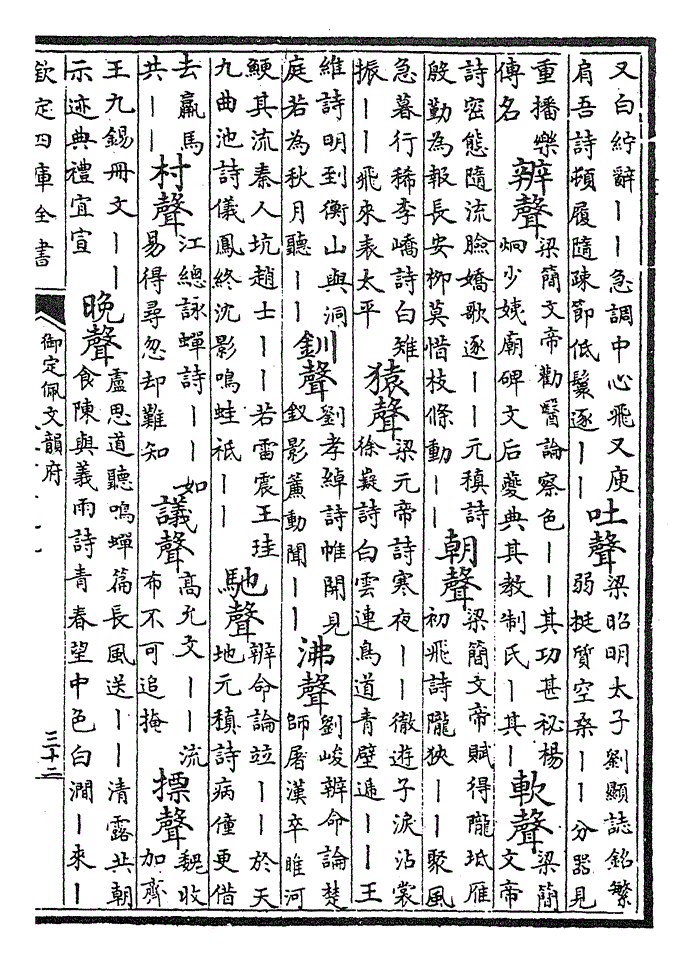 又白紵辭——急調中心飛又庾
肩吾詩頓履隨疎節低鬟逐——
吐聲
梁昭明太子劉顯誌銘繁
弱挺質空桑——分器見
重播樂
傳名
辨聲
梁簡文帝勸醫論察色——其功甚祕楊
炯少姨廟碑文后夔典其教制氏—其—
軟聲
梁簡
文帝
詩密態隨流臉嬌歌逐——元稹詩
殷勤為報長安柳莫惜枝條動——
朝聲
梁簡文帝賦得隴坻雁
初飛詩隴狹——聚風
急暮行稀李嶠詩白雉
振——飛來表太平
猿聲
梁元帝詩寒夜——徹遊子淚沾裳
徐嶷詩白雲連鳥道青壁遞——王
維詩明到衡山與洞
庭若為秋月聽——
釧聲
劉孝綽詩帷開見
釵影簾動聞——
沸聲
劉峻辨命論楚
師屠漢卒睢河
鯁其流秦人坑趙士——若雷震王珪
九曲池詩儀鳳終沈影鳴蛙祇——
馳聲
辨命論竝——於天
地元稹詩病僮更借
去羸馬
共——
村聲
江總詠蟬詩——如
易得尋忽却難知
議聲
高允文——流
布不可追掩
摽聲
魏收
加齊
王九錫冊文——
示迹典禮宜宣
晚聲
盧思道聽鳴蟬篇長風送——清露共朝
食陳與義雨詩青春望中色白澗—來—
欽定四庫全書
御定佩文韻府
三十二